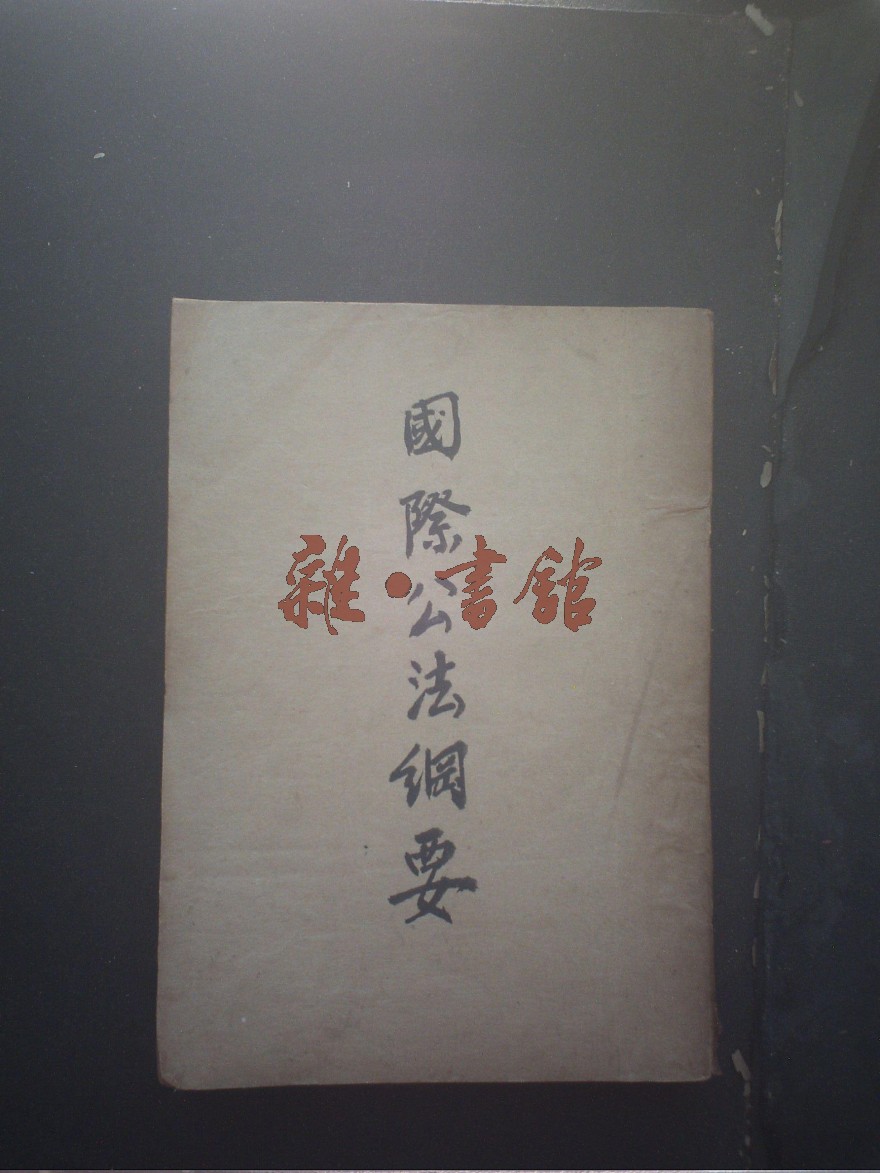 國際公法綱要
雜•書館